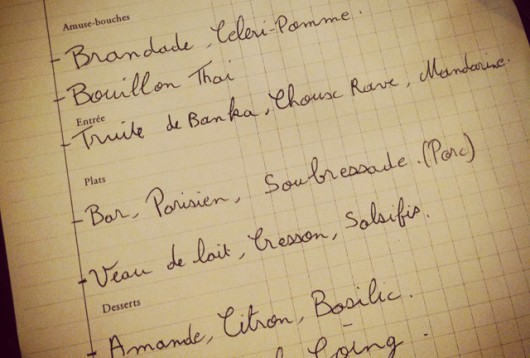 Amuse-bouches
- Brandade, Céleri-Pomme.
- Bouillon Thaï
Entrée
- Truite de Banka, Chouse Rave, Mandarine.
Plats
- Bar, Parisien, Soubressade. (Porc)
- Veau de lait, Cresson, Salsifis.
Desserts
- Amande, Citron, Basilic.
Coing.